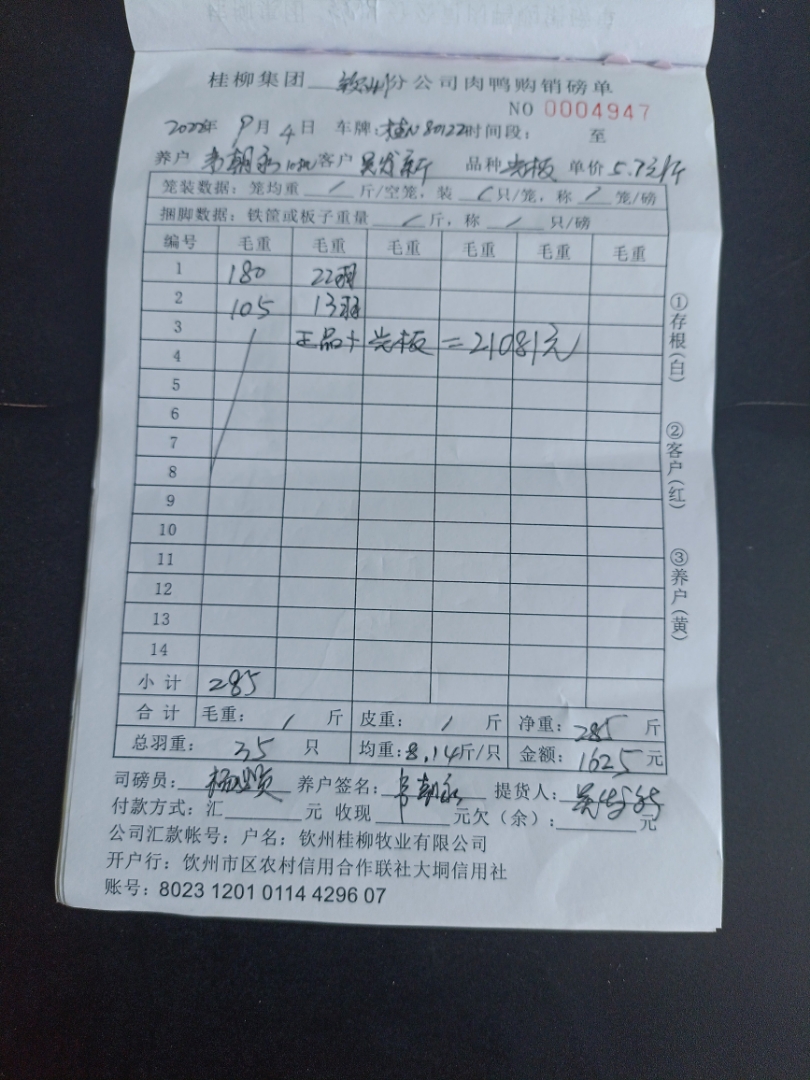 桂柳集团 钦州 分公司肉鸭购销磅单
NO 0004947
2022年 9月 4日 车牌:桂N80122 时间段: 至
养户 韦朝永 客户 品种 光板 单价 5.7元/斤
笼装数据: 笼均重 / 斤/空笼, 装 / 只/笼, 称 / 笼/磅
捆脚数据: 铁筐或板子重量 / 斤, 称 / 只/磅
编号 毛重 毛重 毛重 毛重 毛重 毛重
1 180 22羽
2 105 13羽
3 正品+光板=21081元
4
5
6
7
8
9
10
11
12
13
14
小计 285
合计 毛重: / 斤 皮重: / 斤 净重: 285 斤
总羽重: 35 只 均重: 8.14斤/只 金额: 1625元
司磅员: 养户签名: 韦朝永 提货人:
付款方式: 汇 元 收现 元欠(余): 元
公司汇款帐号: 户名: 钦州桂柳牧业有限公司
开户行: 钦州市区农村信用合作联社大垌信用社
账号: 8023 1201 0114 4296 07
①存根(白)
②客户(红)
③养户(黄)